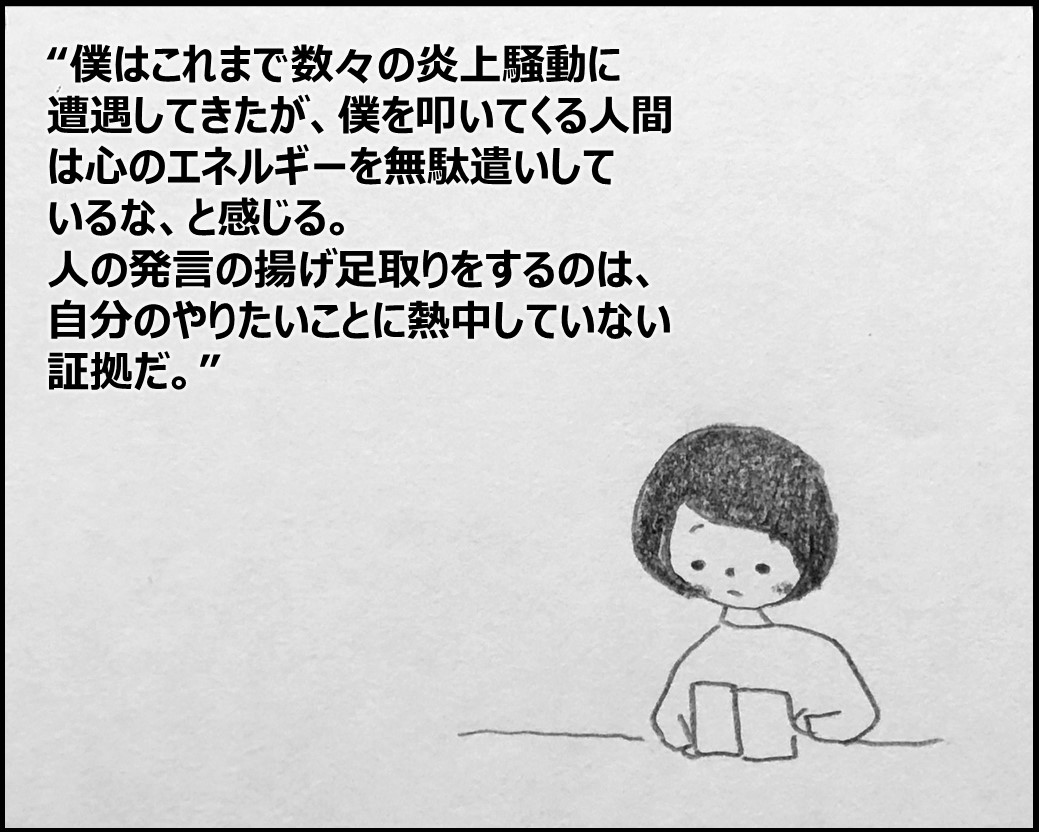 “僕はこれまで数々の炎上騒動に
遭遇してきたが、僕を叩いてくる人間
は心のエネルギーを無駄遣いして
いるな、と感じる。
人の発言の揚げ足取りをするのは、
自分のやりたいことに熱中していない
証拠だ。”